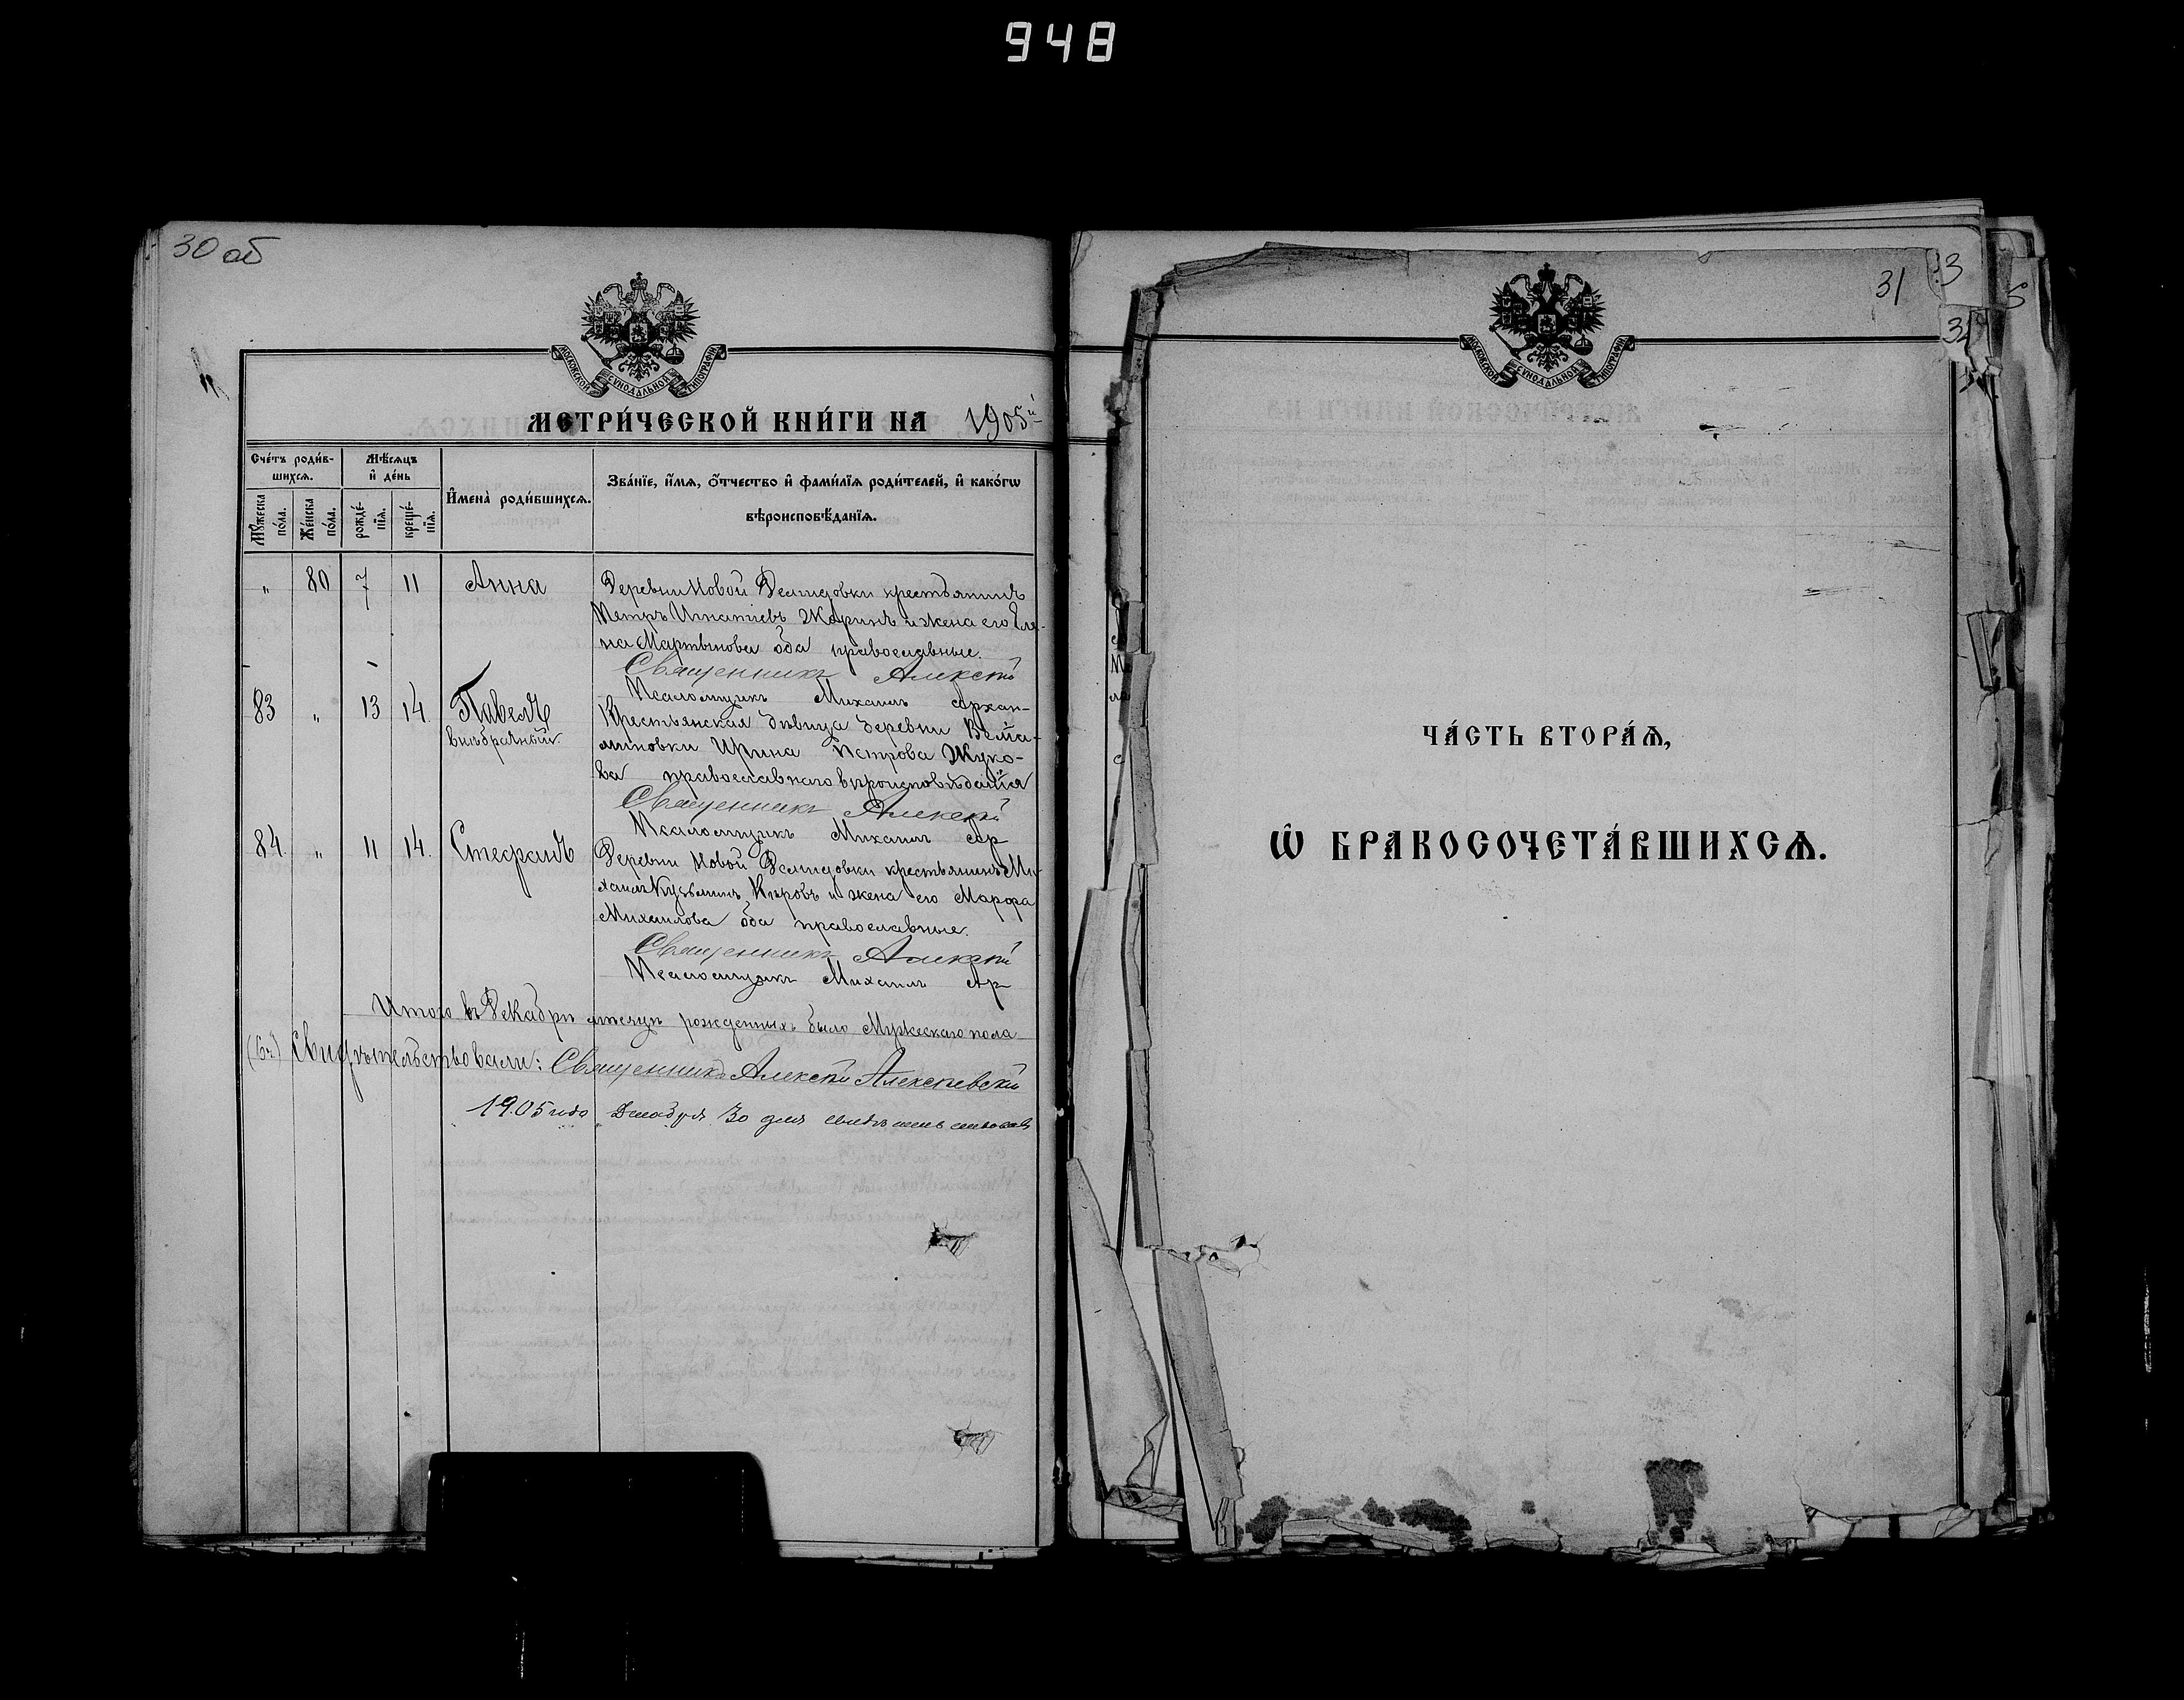 948
30 об
МОСКОВСКОЙ СѴНОДАЛЬНОЙ ТИПОГРАФІИ
МЕТРИ́ЧЕСКОЙ КНИ́ГИ НА 1905й
Сче́тъ роди́в-
шихся.
Мѣ́сяцъ
и҆ де́нь
Мꙋ́жеска по́ла.
Же́нска по́ла.
рожде́-
нїя.
креще́-
нїя.
И҆мена̀ роди́вшихся.
Зва́нїе, и҆́мя, ѻ҆́тчество и҆ фами́лїя роди́телей, и҆ како́гѡ
вѣроисповѣ́данїя.
" 80 7 11 Анна Деревни Новой Демидовки крестьянинъ
Петръ Игнатіевъ Жаринъ и жена его Еле-
на Мартынова оба православные.
Священникъ Алексѣй
Псаломщикъ Михаилъ Архан-
83 " 13 14 Павелъ Крестьянская дѣвица деревни
внѣбрачный Ирина Петрова Жуко-
ва православнаго вѣроисповѣданія
Священникъ Алексѣй
Псаломщикъ Михаилъ Ар
84 " 11 14 Стефанъ Деревни Новой Демидовки крестьянинъ Ми-
хаилъ Кузьминъ и жена его Марфа
Михаилова оба православные.
Священникъ Алексѣй
Псаломщикъ Михаилъ Ар
Итого въ Декабрѣ мѣсяцѣ рожденныхъ было Мужескаго пола
Свидѣтельствовали: Священникъ Алексѣй Алексѣевскій
1905 года Декабря 30 дня
31
3
МОСКОВСКОЙ СѴНОДАЛЬНОЙ ТИПОГРАФІИ
ЧА́СТЬ ВТОРА́Я,
Ѡ҆ БРАКОСОЧЕТА́ВШИХСЯ.